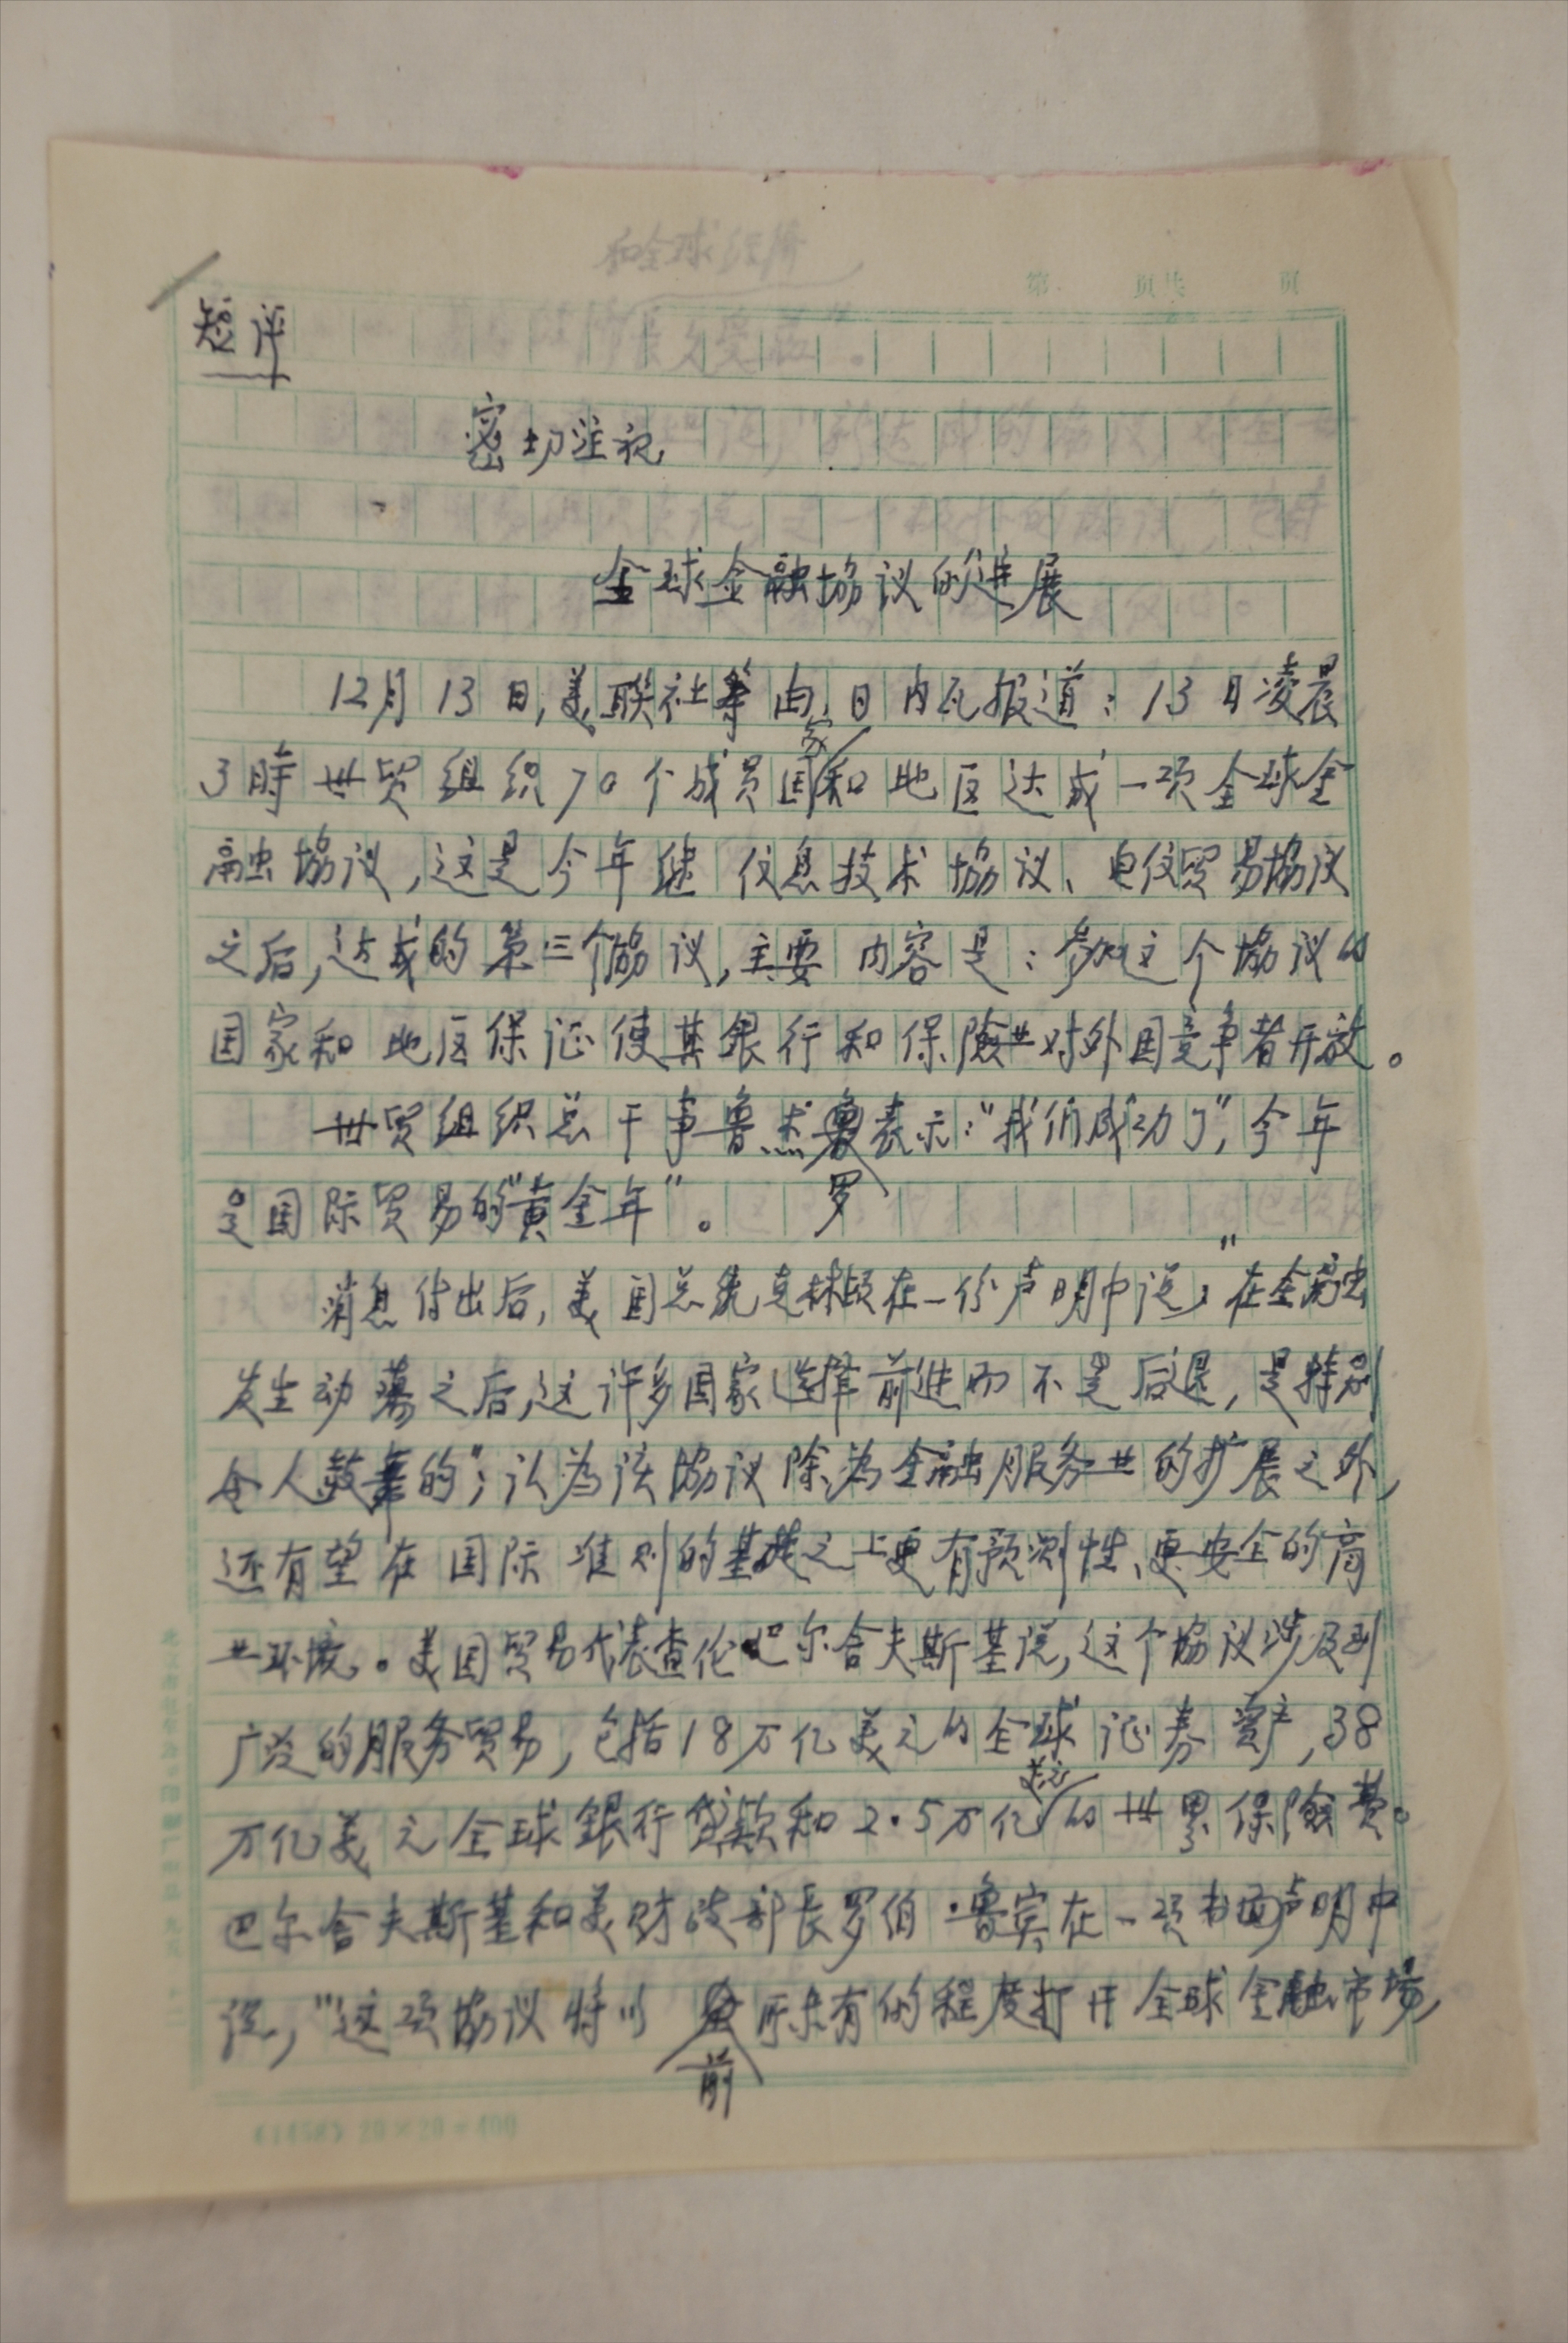 第 页共 页
短评
密切注视
全球金融協议的進展
12月13日,美联社等由日内瓦报道:13日凌晨
3時世贸组织70个成员国家和地区达成一项全球金
融協议,这是今年继信息技术協议、电信贸易協议
之后,达成的第三个協议,主要内容是:参加这个協议的
国家和地区保证使其銀行和保險业对外国竞争者开放。
世贸组织总干事鲁杰罗表示:“我们成功了”,今年
是国际贸易的“黄金年”。
消息传出后,美国总统克林顿在一份声明中说,“在金融
发生动荡之后,这许多国家选择前進而不是后退,是特别
令人鼓舞的”;认为该協议除为金融服务业的扩展之外,
还有望在国际准则的基礎之上更有预测性、更安全的商
业环境。美国贸易代表查伦·巴尔舍夫斯基说,这个協议涉及到
广泛的服务贸易,包括18万亿美元的全球证券资产,38
万亿美元全球銀行贷款和2.5万亿美元的世界保險费。
巴尔舍夫斯基和美财政部長罗伯·鲁宾在一项书面声明中
说,“这项協议将以前所未有的程度打开全球金融市場,
(1458) 20×20=400